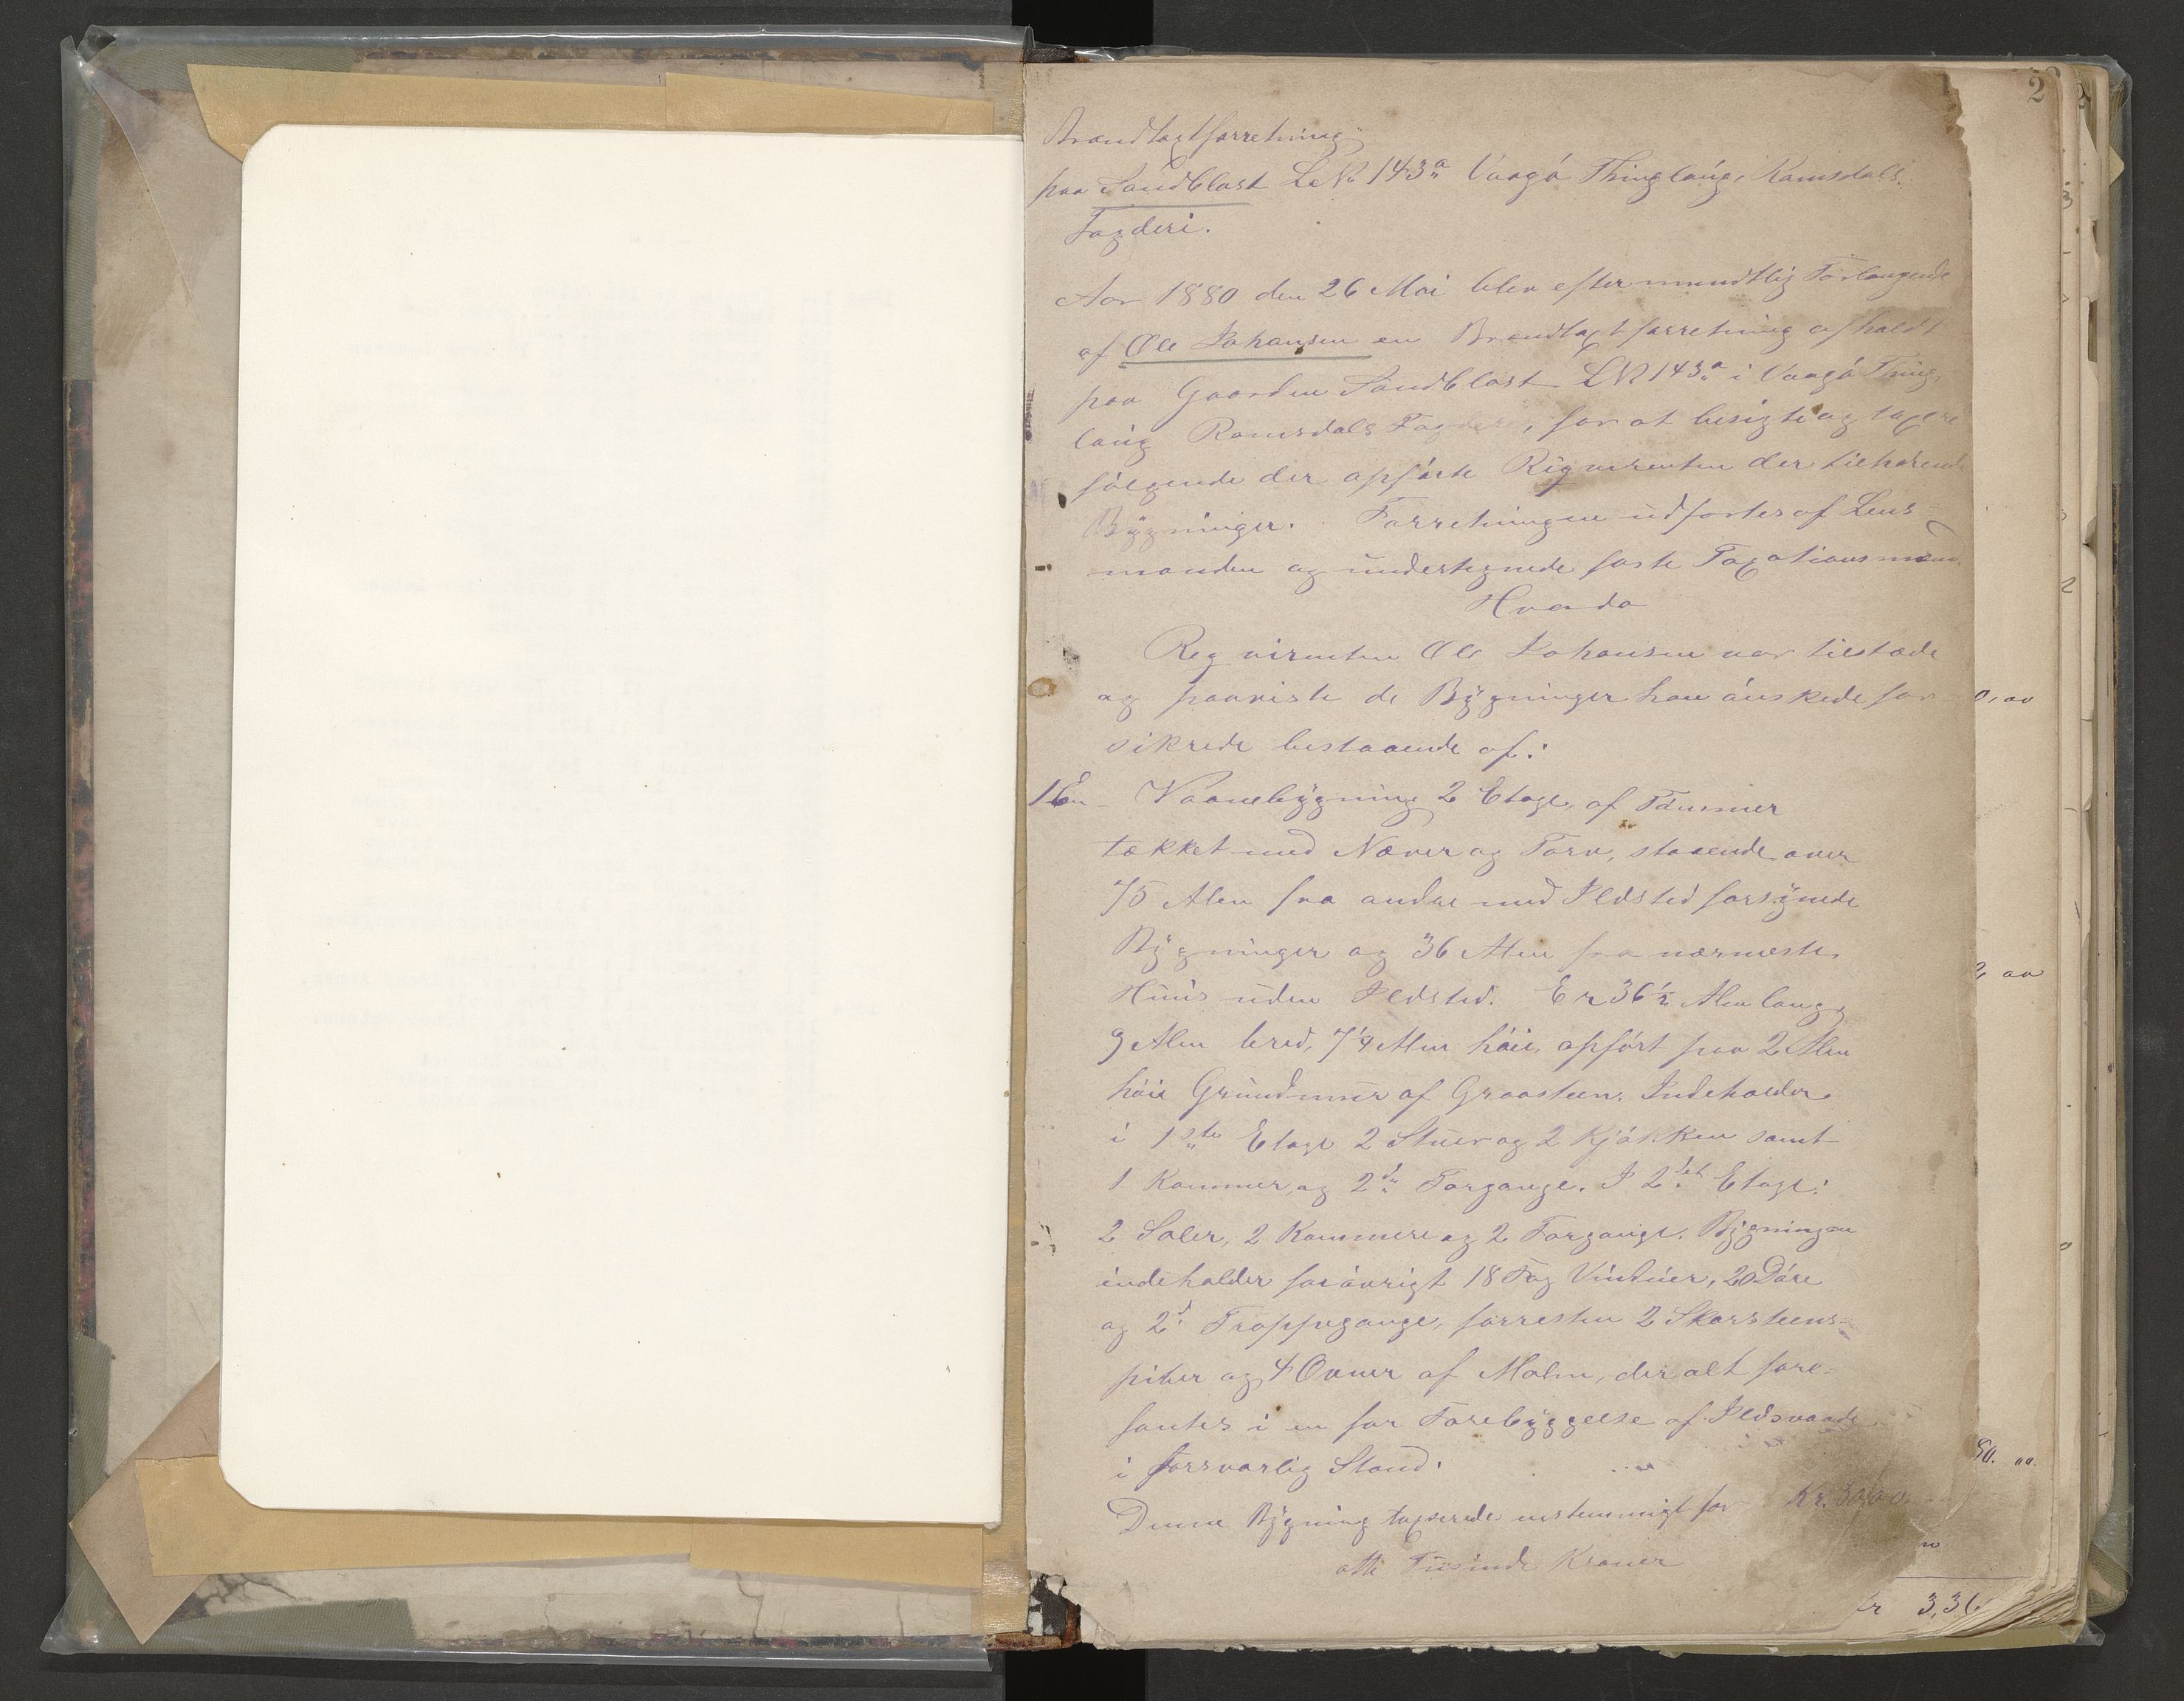 1
2
Brandtaxtforretning
paa Sandblast L.No 143a Vaagø Thinglaug, Romsdals
Fogderi.
Aar 1880 den 26 Mai blev efter mundtlig Forlangende
af Ole Johansen en Brandtaxtforretning afholdt
paa Gaarden Sandblast LN 143a i Vaagø Thing,
laug Romsdals Fogderi, for at besigte og taxere
følgende der opførte Reqvirenten der tilhørende
Bygninger. Forretningen udførtes af Lens
manden og undertegnede faste Taxationsmænd.
Hvorda
Reqvirenten Ole Johansen var tilstæde
og paaviste de Bygninger han ønskede for
sikrede bestaaende af:
1 En Vaanebygning 2 Etage, af Tømmer
tækket med Næver og Torv, staaende over
75 Alen fra andre med Ildsted forsynede
Bygninger og 36 Alen fra nærmeste
Huus uden Ildsted. Er 36½ Alen lang,
9 Alen bred, 7¼ Alen høie, opført paa 2 Alen
høie Grundmuur af Graasteen. Indeholder
i 1ste Etage 2 Stuer og 2 Kjøkken samt
1 Kammer, og 2de Forgange. I 2det Etage:
2 Saler, 2 Kammere og 2 Forgange. Bygningen
indeholder forøvrigt 18 Fag Vinduer, 20 Døre
og 2d Trappegange, forresten 2 Skorsteens-
piber og 4 Ovner af Malm, der alt fore-
fantes i en for Forebyggelse af Ildsvaade
i forsvarlig Stand.
Denne Bygning taxerede enstemmigt for Kr.
otte Tusinde Kroner
3,36